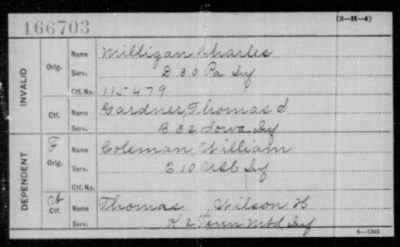 166703 (3-H-4)
INVALID
Orig. Name Milligan Charles
Serv. D 30 Pa Inf
Ctf. No. 115479
Ctf. Name Gardner, Thomas J
Serv. B 32 Iowa Inf
DEPENDENT
F Orig. Name Coleman, William
Serv. E 10 USC Inf
Ctf. No.
Ctf. Name Thomas Wilson H
Serv. K 2 Tenn Mtd Inf